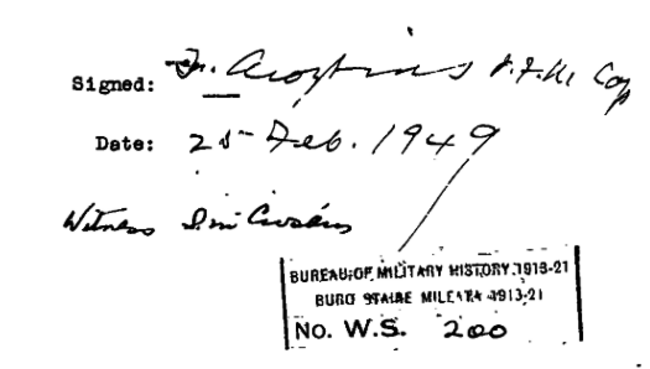 Signed: Fr. Aloysius O.F.M. Cap
Date: 25 Feb. 1949
Witness
BUREAU OF MILITARY HISTORY 1913-21
BURO STAIRE MILEATA 1913-21
No. W.S. 200